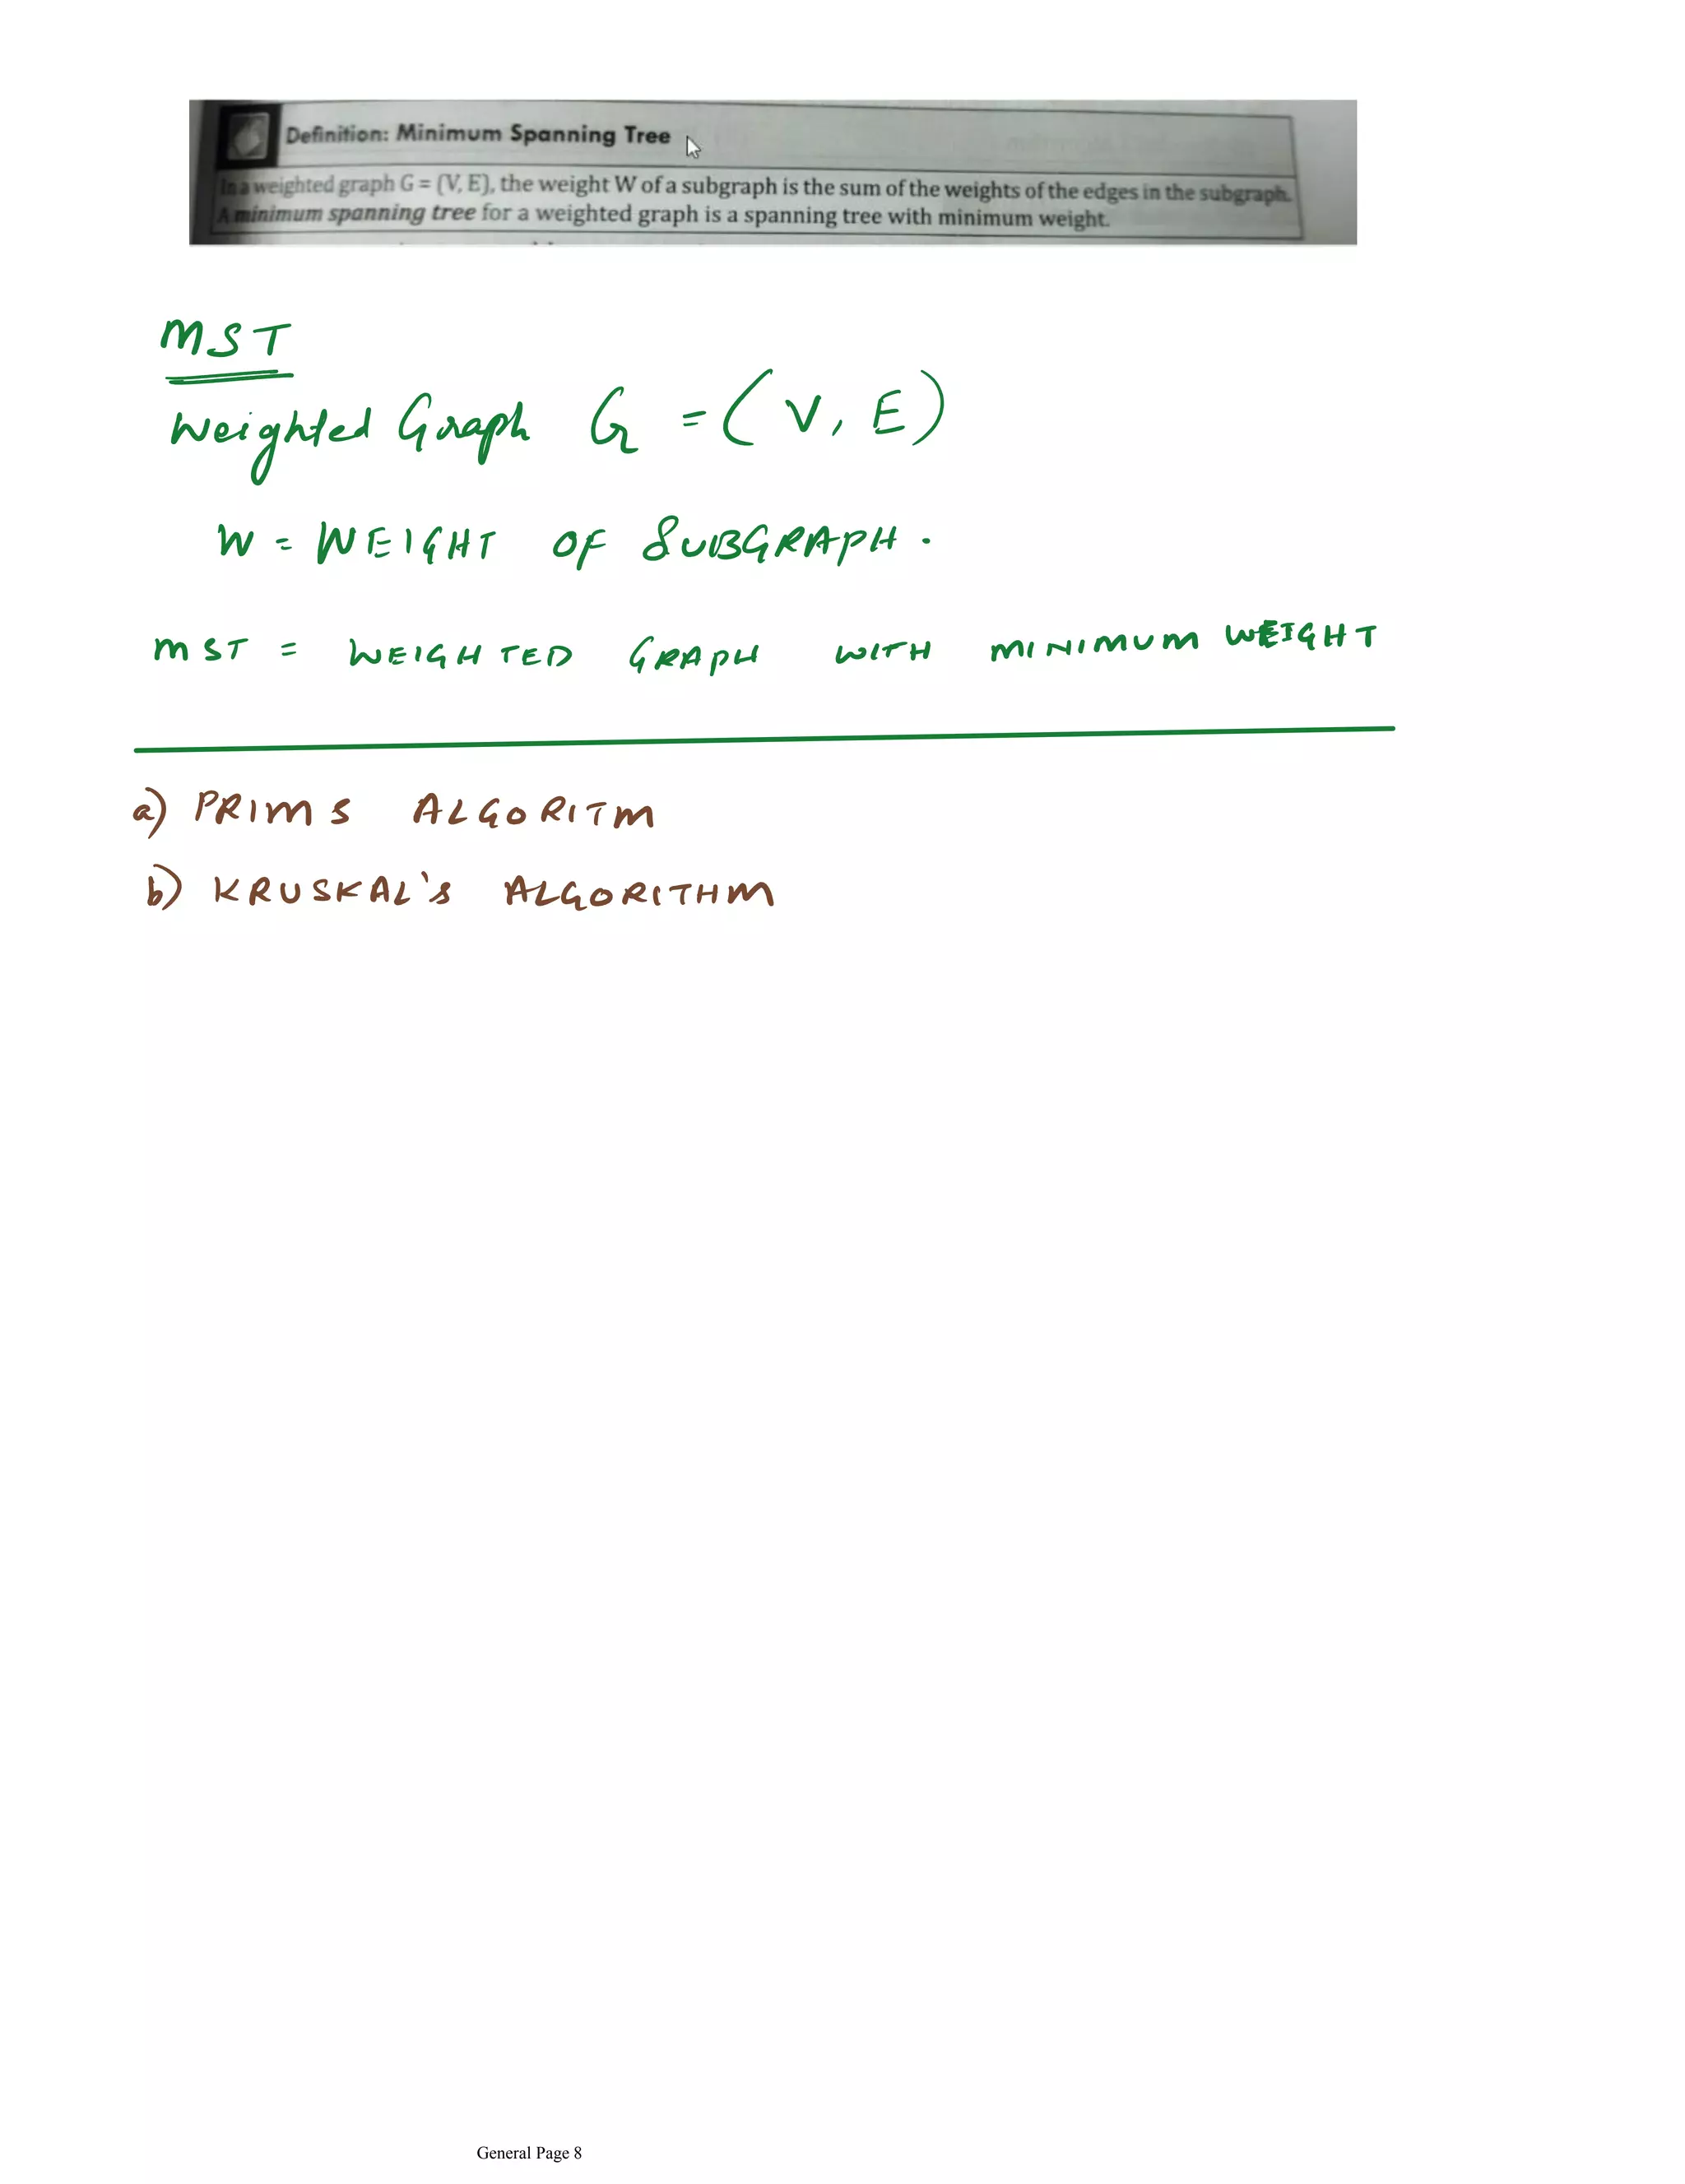 Definition: Minimum Spanning Tree
In a weighted graph G = (V, E), the weight W of a subgraph is the sum of the weights of the edges in the subgraph.
A minimum spanning tree for a weighted graph is a spanning tree with minimum weight.
MST
Weighted Graph G = (V, E)
W = WEIGHT OF SUBGRAPH.
MST = WEIGHTED GRAPH WITH MINIMUM WEIGHT
a) PRIMS ALGORITM
b) KRUSKAL'S ALGORITHM
General Page 8